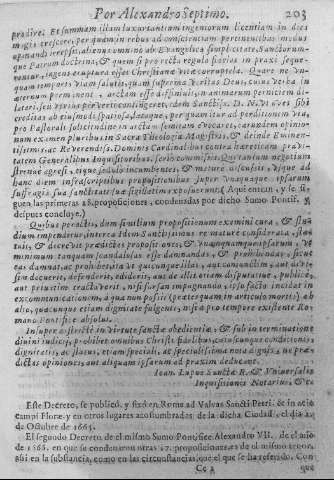 Por Alexandro Septimo. 203
prodire. Et summam illam luxuriantium ingeniorum licentiam in dies
magis crescere, per quam in rebus ad conscientiam pertinentibus modus
opinandi irrepsit, alienus omnino ab Evangelica simplicitate, Sanctorum-
que Patrum doctrina, & quem si pro recta regula fideles in praxi seque-
rentur, ingens eruptura esset Christianæ vitæ corruptela. Quare ne un-
quam tempore viam salutis, quam suprema Veritas Deus, cuius verba in
æternum permanent, arctam esse diffinivit, in animarum perniciem di-
latari, seu verius perverti contingeret, idem Sanctiss. D. N. ut oves sibi
creditas ab eiusmodi spatiosa, lataque, per quam itur ad perditionem via,
pro Pastorali solicitudine in arctam semitam evocaret, earumdem opinio-
num examen pluribus in Sacra Theologia Magistris, & deinde Eminen-
tissimis, ac Reverendiss. Dominis Cardinalibus contra hæreticam pravi-
tatem Generalibus Inquisitoribus, serio commisit. Qui tantum negotium
strenue agressi, eique sedulo incumbentes, & mature discussis, usque ad
hanc diem infrascriptis propositionibus super unaquaque ipsarum
suffragia sua sanctitati suæ sigillatim exposuerunt (Aqui entran, y se si-
guen las primeras 28. proposiciones, condenadas por dicho Sumo Pontif. y
despues concluye.)
Quibus peractis, dum similium propositionum examini cura, & stu-
dium impenderetur, interea Idem Sanctissimus re mature considerata, sta-
tuit, & decrevit prædictas propositiones, & unamquamque ipsarum, ut
minimum tanquam scandalosas esse damnandas, & prohibendas, sicut
eas damnat, ac prohibet, ita ut quicunque illas, aut coniunctim, aut divi-
sim docuerit, defenderit, ediderit, aut de eis etiam disputative, publice,
aut privatim tractaverit, nisi forsan impugnando, ipso facto incidat in
excommunicationem, à qua non possit (præterquam in articulo mortis) ab
alio, quacunque etiam dignitate fulgente, nisi à pro tempore existente Ro-
mano Pontifice absolvi.
Insuper districtè in virtute sanctæ obedientiæ, & sub interminatione
divini judicij, prohibet omnibus Christi fidelibus, cuiuscunque conditionis,
dignitatis, ac status, etiam speciali, ac specialissima nota dignis, ne præ-
dictas opiniones, aut aliquam ipsarum ad praxim deducant.
Ioann. Lupus Sanctæ R. & Vniversalis
Inquisitionis Notarius, &c.
Este Decreto, se publicò, y fixò en Roma ad Valvas Sancti Petri, & in acie
campi Floræ, y en otros lugares acostumbrados de la dicha Ciudad, el dia
de Octubre de 1665.
El segundo Decreto de el mismo Sumo Pontifice Alexandro VII. de el año
de 1666. en que se condenaron otras 17. proposiciones, es de el mismo tenor,
assi en la substancia, como en las circunstancias, que el que se ha referido. Con
Cc 2 que